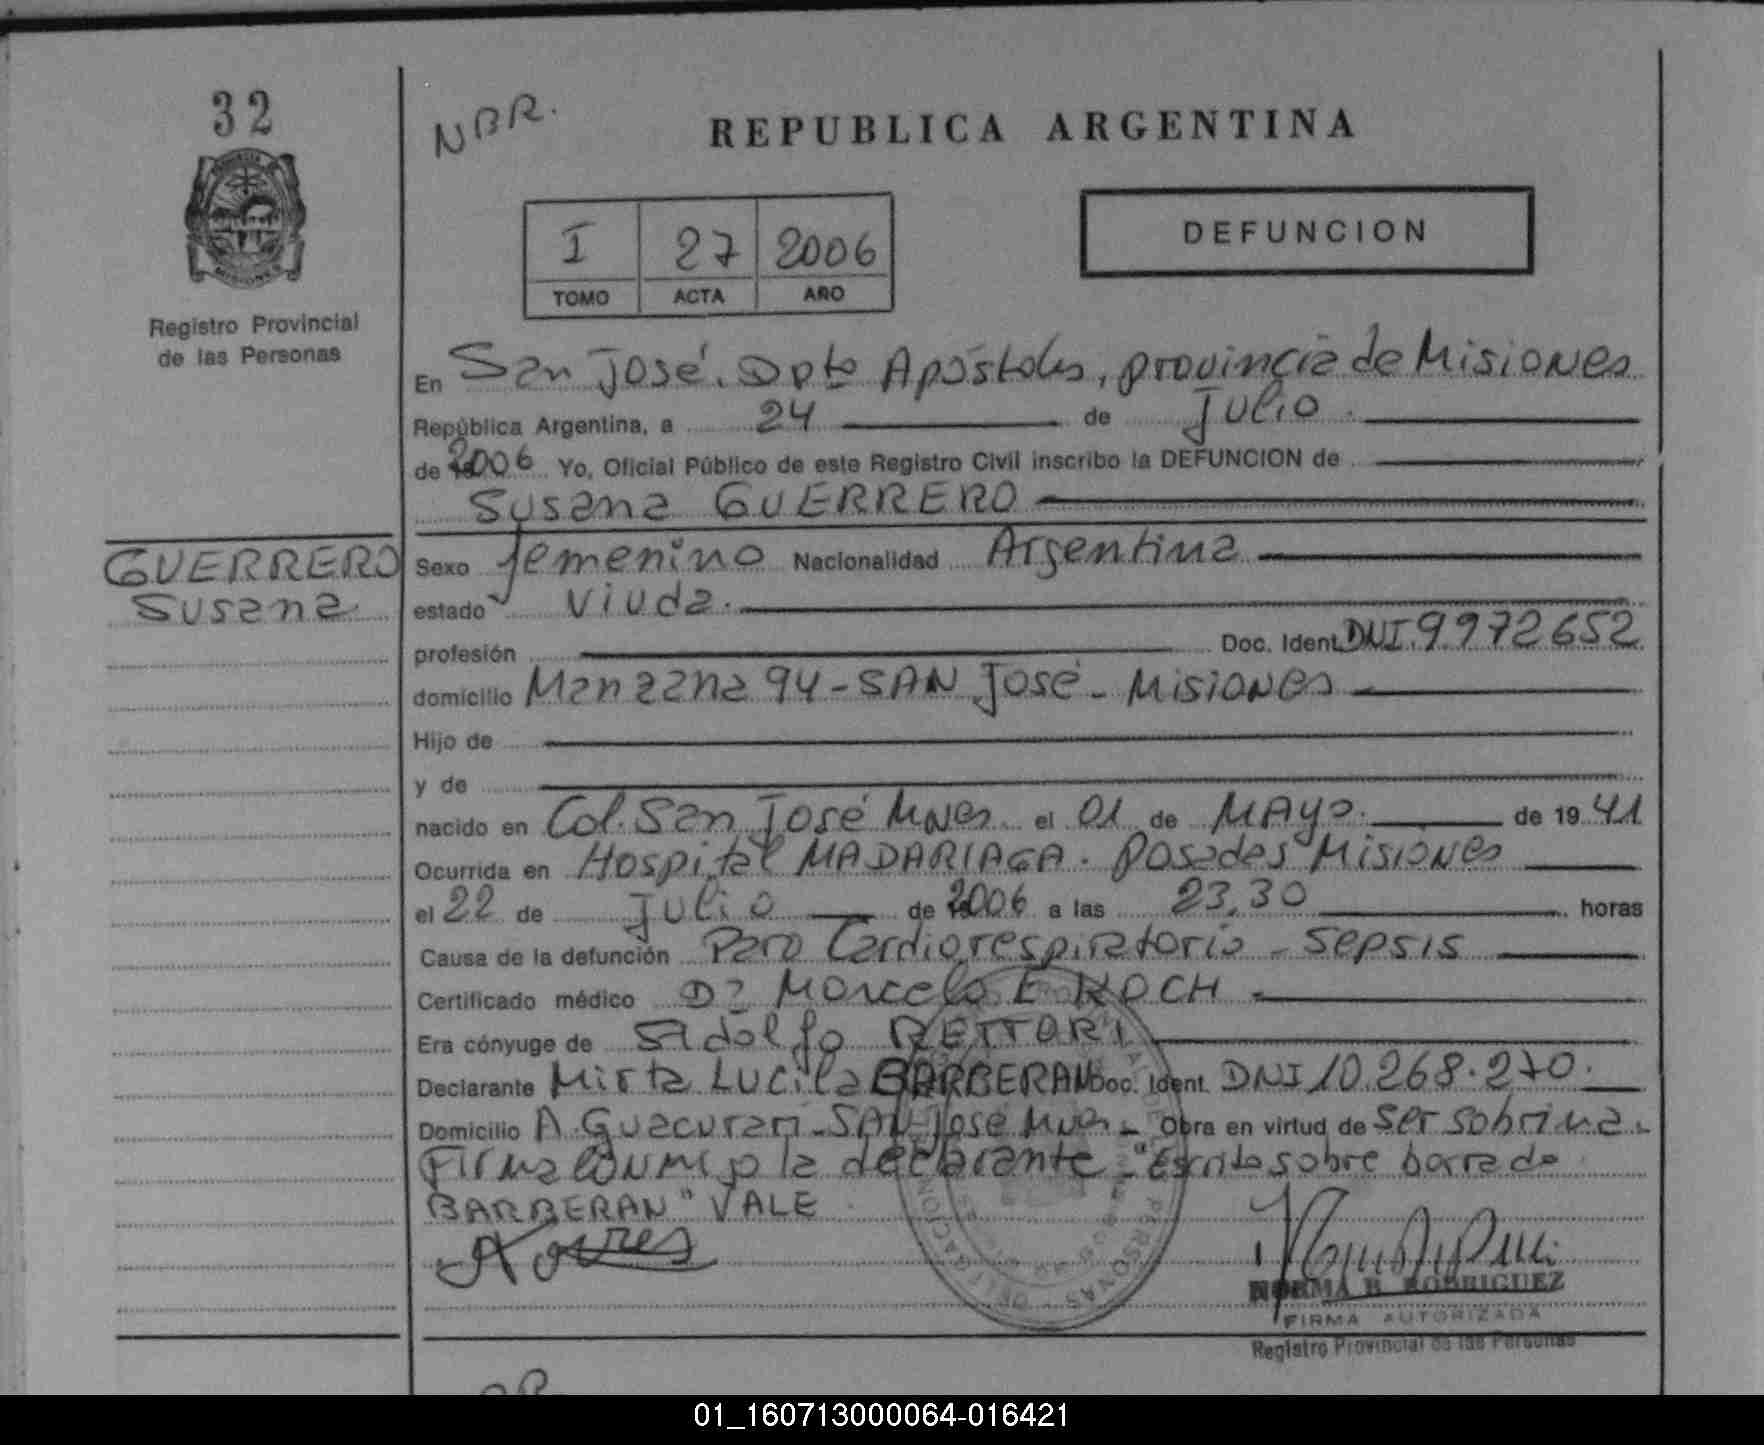 32
NBR.
REPUBLICA ARGENTINA
I 27 2006
TOMO ACTA AÑO
DEFUNCION
Registro Provincial
de las Personas
En San José. Dpto Apóstoles, provincia de Misiones
República Argentina, a 24 de Julio.
de 2006 Yo, Oficial Público de este Registro Civil inscribo la DEFUNCION de
Susana GUERRERO
GUERRERO
Susana
Sexo femenino Nacionalidad Argentina
estado viuda.
profesión Doc. Ident. DNI.9972652
domicilio Manzana 94 - SAN José - Misiones
Hijo de
y de
nacido en Col. San José Mnes el 01 de MAYO. de 1941
Ocurrida en Hospital MADARIAGA. Posadas Misiones
el 22 de Julio de 2006 a las 23,30 horas
Causa de la defunción Paro Cardiorespiratorio - Sepsis
Certificado médico Dr Marcelo E KOCH
Era cónyuge de Adolfo RETTORI
Declarante Mirta Lucila BARBERAN Doc. Ident. DNI 10.268.270.
Domicilio A. Guacurari - SAN José Mnes - Obra en virtud de ser sobrina.
Firma conmigo la declarante - "Escrito sobre borrado
BARBERAN" VALE
NORMA B. RODRIGUEZ
FIRMA AUTORIZADA
Registro Provincial de las Personas
01_160713000064-016421